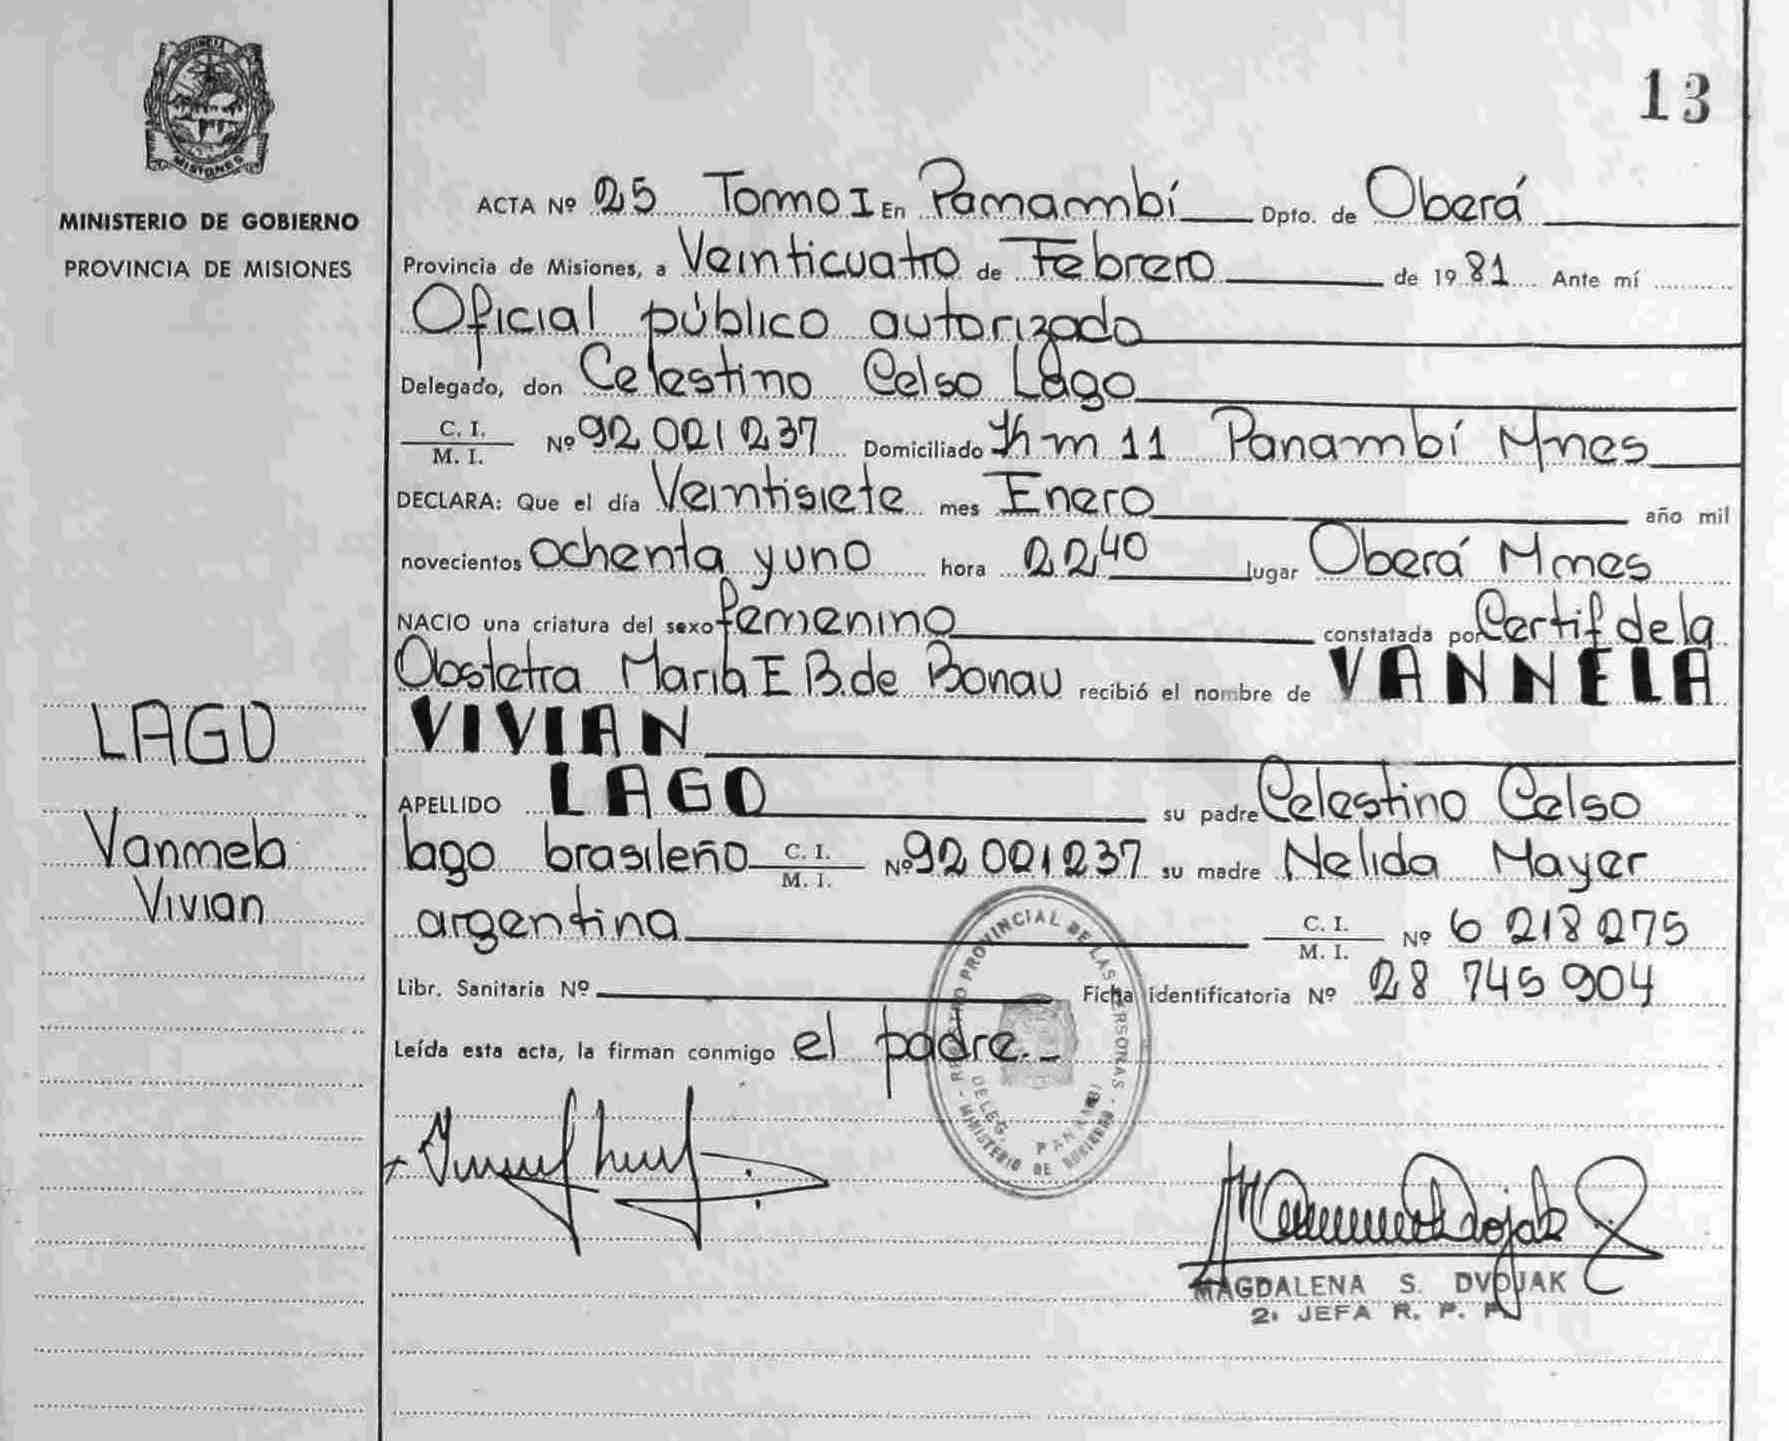 13
MISIONES
MINISTERIO DE GOBIERNO
PROVINCIA DE MISIONES
ACTA Nº 25 Tomo I En Panambí Dpto. de Oberá
Provincia de Misiones, a Veinticuatro de Febrero de 1981 Ante mí
Oficial público autorizado
Delegado, don Celestino Celso Lago
C. I.
M. I. Nº 92 021 237 Domiciliado Km 11 Panambí Mnes
DECLARA: Que el día Veintisiete mes Enero año mil
novecientos ochenta y uno hora 22,40 lugar Oberá Mnes
NACIO una criatura del sexo femenino constatada por Certif de la
Obstetra María E B. de Bonau recibió el nombre de VANNELA
VIVIAN
APELLIDO LAGO su padre Celestino Celso
lago brasileño C. I.
M. I. Nº 92 021 237 su madre Nelida Mayer
argentina C. I.
M. I. Nº 6 218 275
Libr. Sanitaria Nº Ficha identificatoria Nº 28 745 904
Leída esta acta, la firman conmigo el padre.-
LAGO
Vannela
Vivian
REGISTRO PROVINCIAL DE LAS PERSONAS
DELEG. PANAMBI
MINISTERIO DE GOBIERNO
MAGDALENA S. DVOJAK
2: JEFA R. P. P.